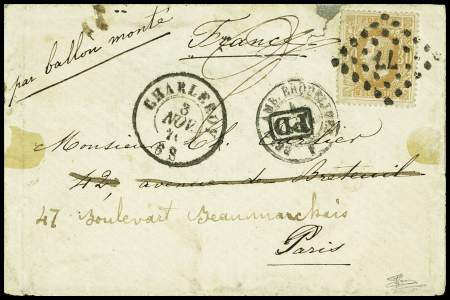 par ballon monté
France
30
77
CHARLEROY
3
NOV.
71
6 S
AMB.
PD
Monsieur Ch.
42, avenue de Breteuil
47 Boulevart Beaumarchais
Paris